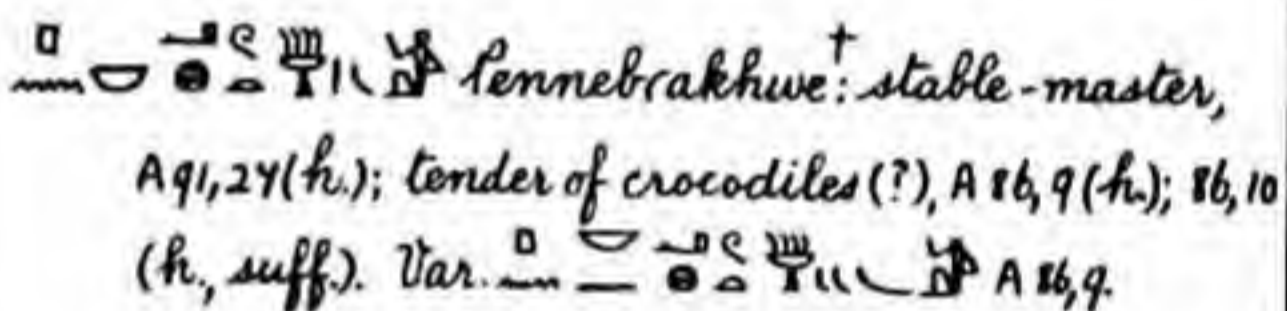 Pennebrakhwe†: stable-master,
A 91,24 (h.); tender of crocodiles (?), A 86, 9 (h.); 86, 10
(h., suff.). Var. A 86,9.